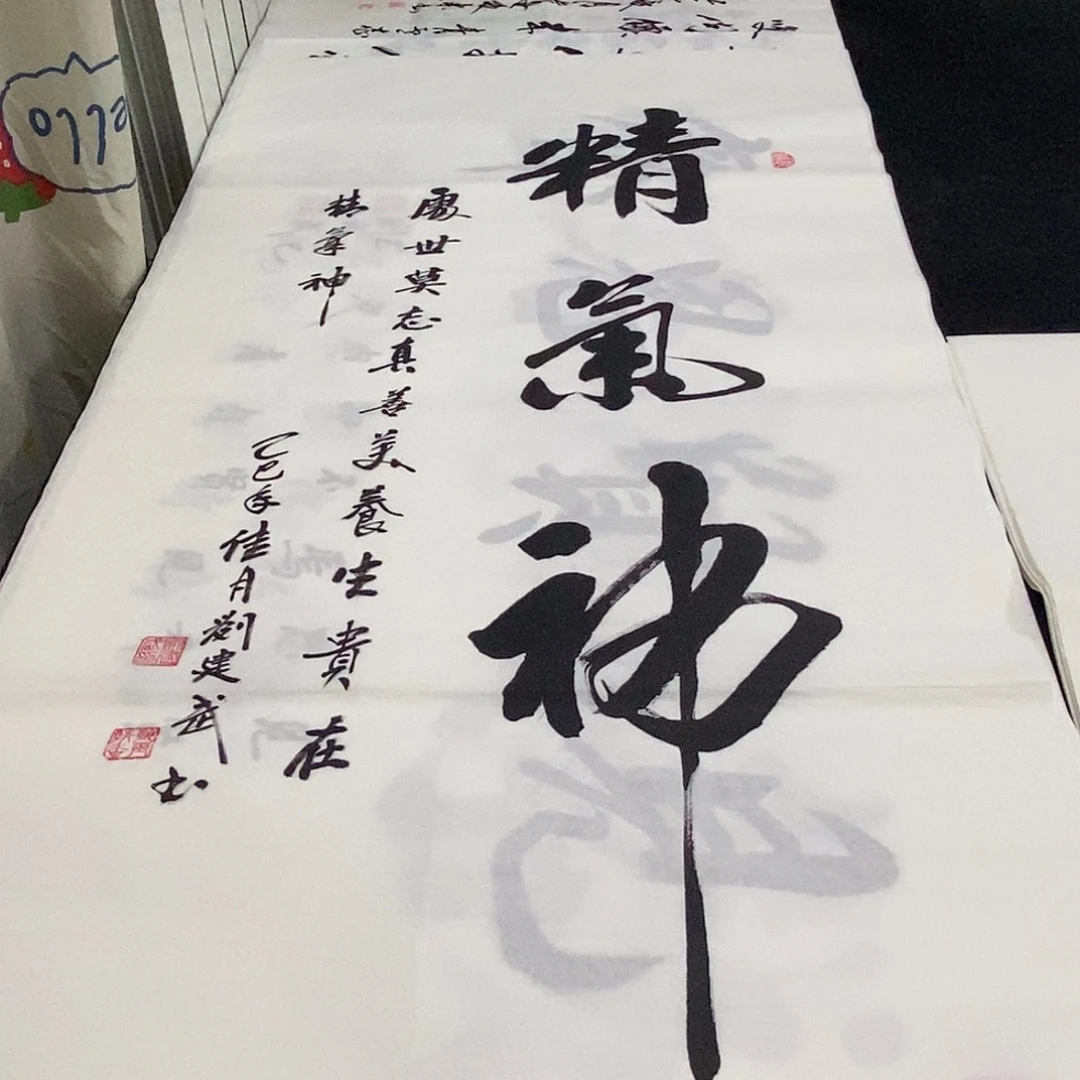 精氣神
處世莫忘真善美養生貴在
精氣神
乙巳年佳月劉建武書